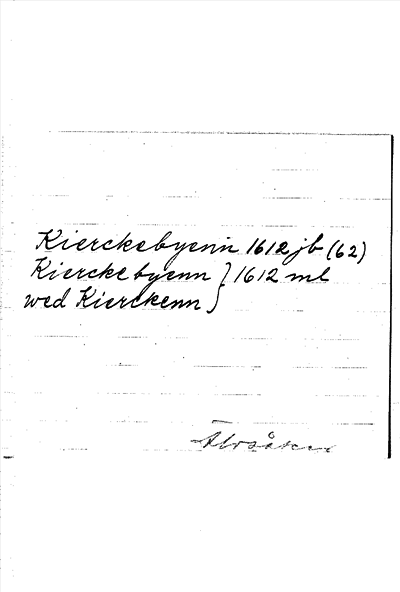 Kierckebyenn 1612 jb (62)
Kierckebyenn } 1612 ml
wed Kierckenn }